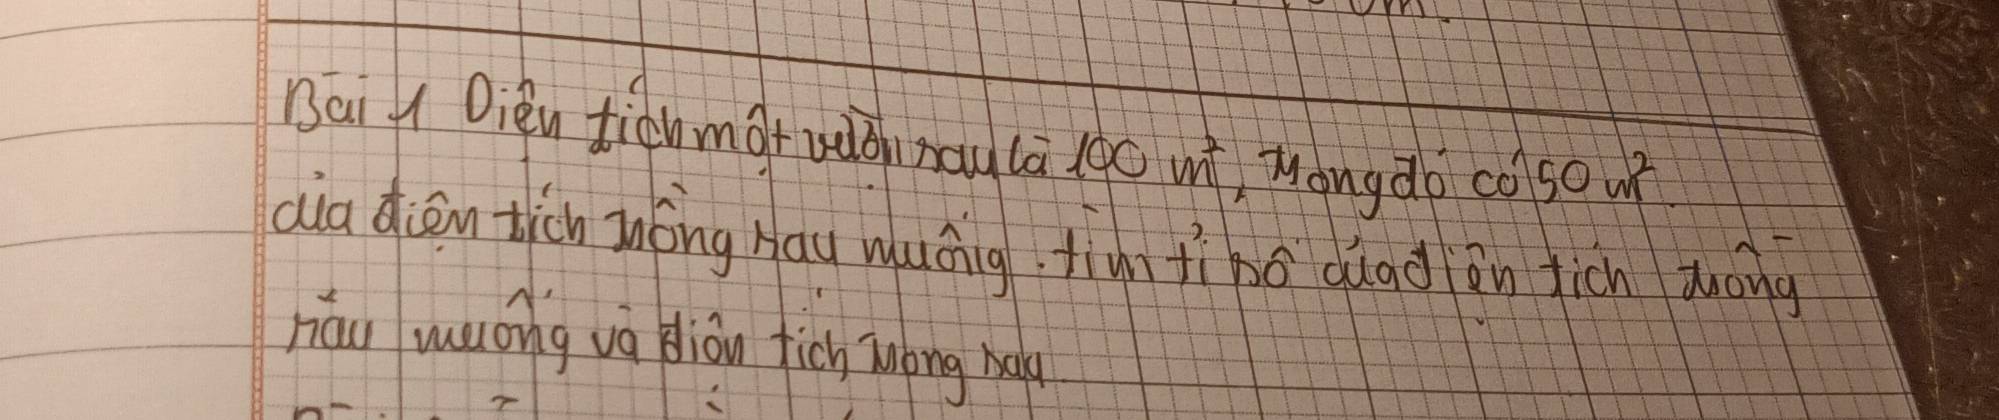 Bài 1 Diện tích một vườn rau là 100 m², trong đó có 50 m²
của diện tích trồng rau muống. tìm tỉ số của diện tích trồng
rau muống và diện tích trồng rau